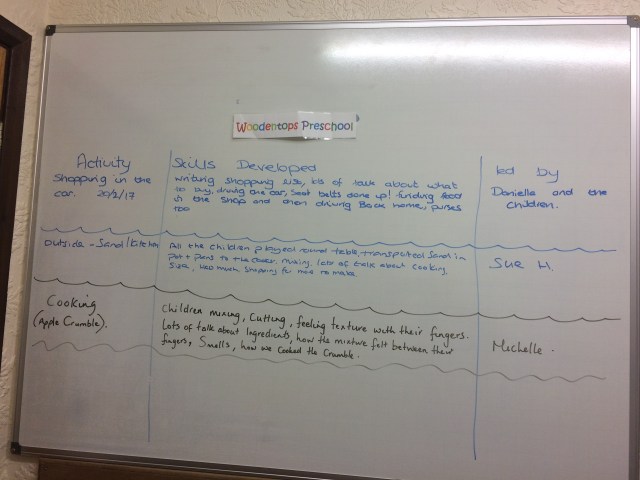 Woodentops Preschool
Activity
Skills Developed
Led by
Shopping in the
car. 20/2/17
Writing shopping lists, lots of talk about what
to buy, driving the car, seat belts done up! funding food
in the shop and then driving Back home, purses
too
Danielle and the
children.
Outside - Sand/Kitchen
All the children played round table, transported Sand in
pots + pans to the cooker, mixing, lots of talk about cooking,
Size, How much shopping for mice to make.
Sue H.
Cooking
(Apple Crumble).
Children mixing, Cutting, feeling texture with their fingers.
Lots of talk about Ingredients, how the mixture felt between their
fingers, Smells, how we Cooked the Crumble.
Michelle.